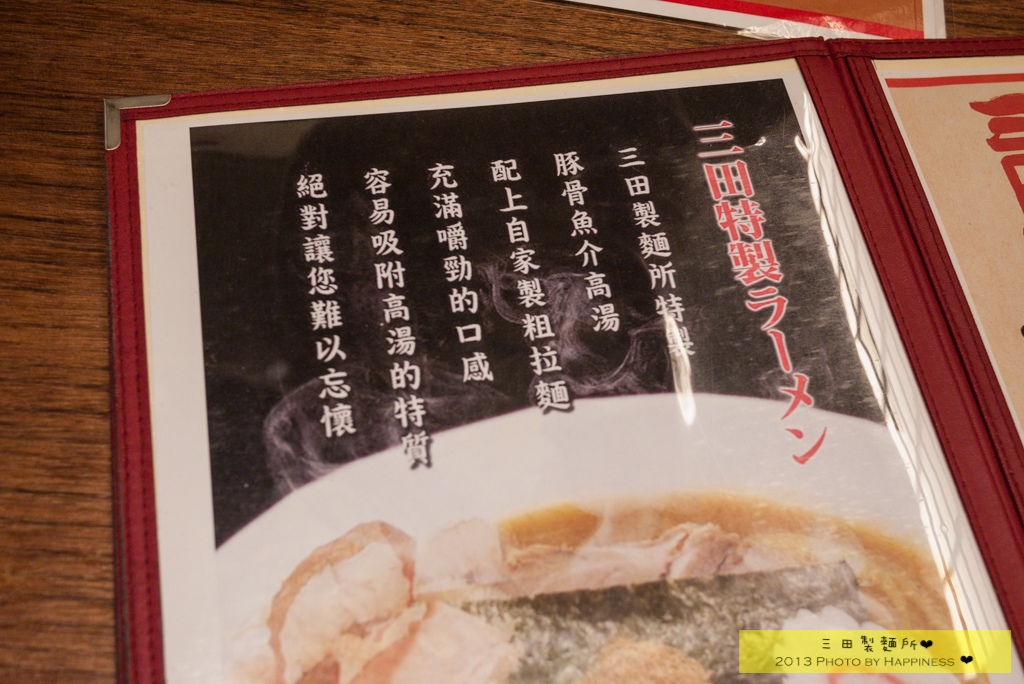 三田特製ラーメン
三田製麵所特製
豚骨魚介高湯
配上自家製粗拉麵
充滿嚼勁的口感
容易吸附高湯的特質
絕對讓您難以忘懷
三田製麵所❤
2013 PHOTO BY HAPPINESS ❤